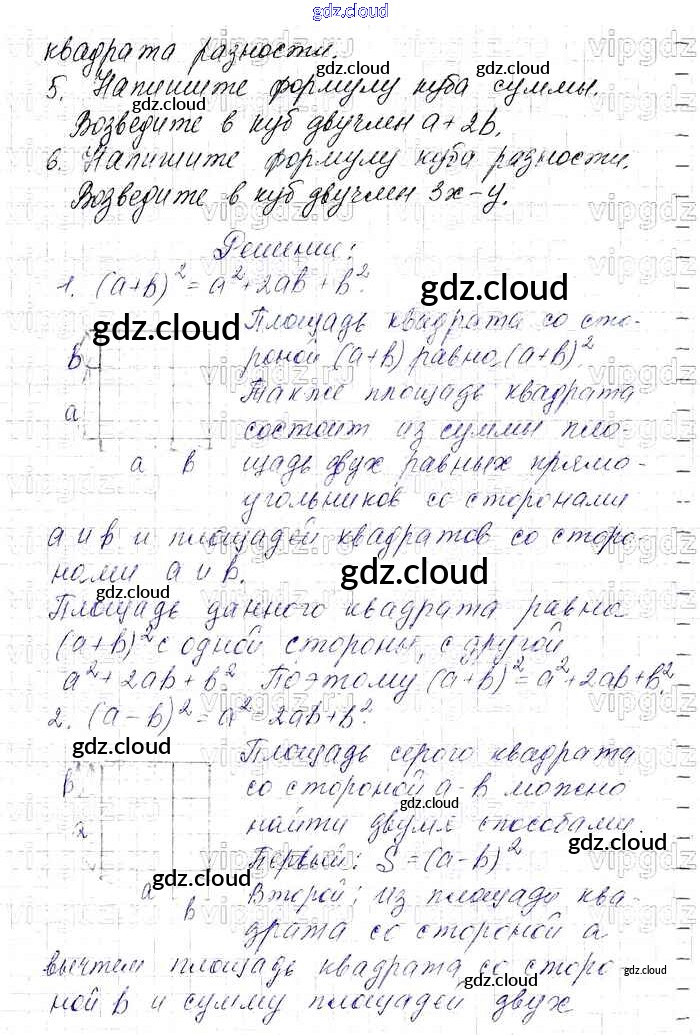 gdz.cloud
квадрата разности.
5. Напишите формулу куба суммы.
Возведите в куб двучлен a+2b.
6. Напишите формулу куба разности.
Возведите в куб двучлен 3x-y.
Решении:
1. (a+b)² = a²+2ab+b².
Площадь квадрата со сто-
роной (a+b) равно (a+b)².
Также площадь квадрата
состоит из суммы пло-
щадь двух равных прямо-
угольников со сторонами
a и b и площадей квадратов со сторо-
нами a и b.
Площадь данного квадрата равна
(a+b)² с одной стороны, с другой
a²+2ab+b². Поэтому (a+b)²=a²+2ab+b².
2. (a-b)² = a²-2ab+b².
Площадь серого квадрата
со стороной a-b можно
найти двумя способами.
Первый: S=(a-b)².
Второй: из площади ква-
драта со стороной a
вычтем площадь квадрата со сторо
ной b и сумму площадей двух
b
a
a b
b
a
a
b
gdz.cloud
gdz.cloud
gdz.cloud
gdz.cloud
gdz.cloud
gdz.cloud
gdz.cloud
gdz.cloud
gdz.cloud
gdz.cloud
gdz.cloud
gdz.cloud
gdz.cloud